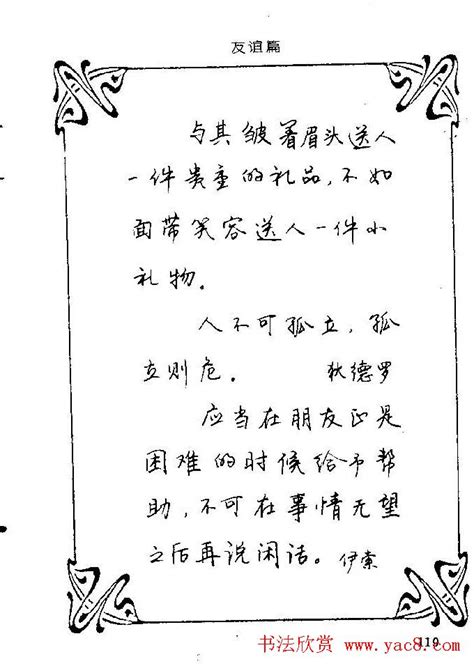 友谊篇
与其皱着眉头送人
一件贵重的礼品,不如
面带笑容送人一件小
礼物。
人不可孤立,孤
立则危。 狄德罗
应当在朋友正是
困难的时候给予帮
助,不可在事情无望
之后再说闲话。 伊索
119
书法欣赏 www.yac8.com